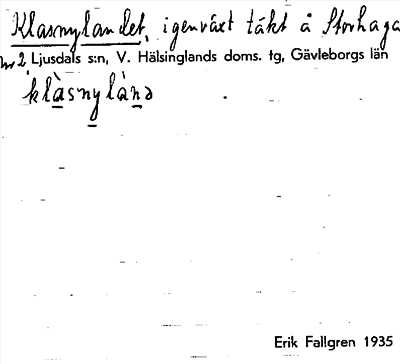 Klasnylandet, igenväxt täkt å Storhaga
nr 2 Ljusdals s:n, V. Hälsinglands doms. tg, Gävleborgs län
klàsnylànd
Erik Fallgren 1935